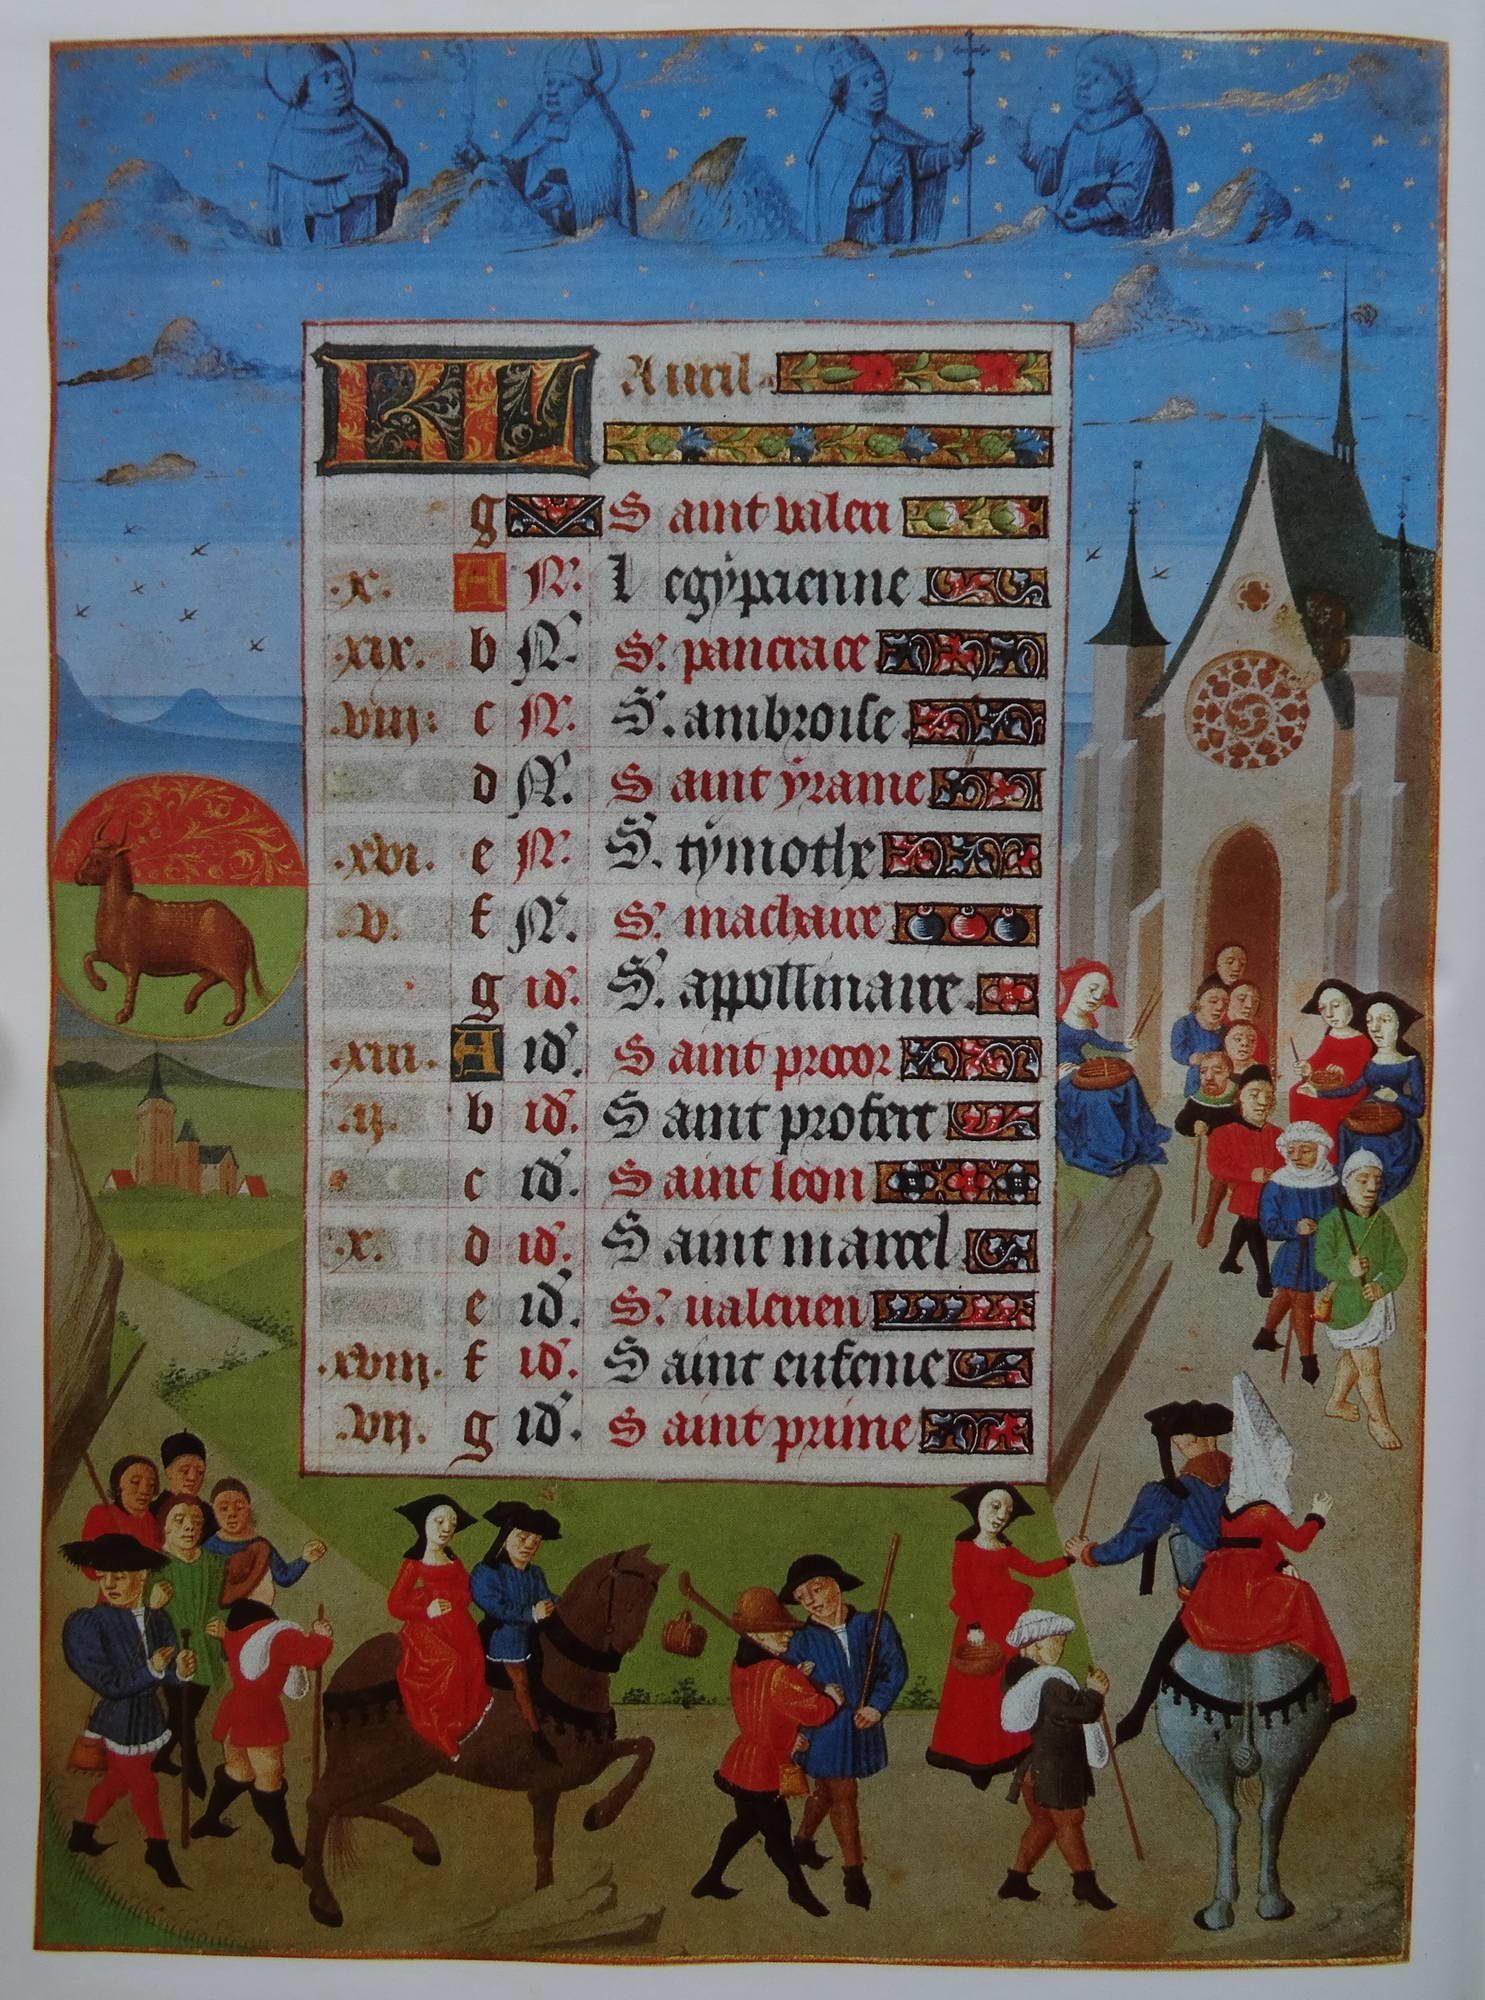 KL Auril
g S aint valeri
.x. A N. L egypcienne
.xix. b N. S. pancrace
.viii. c N. S. ambroise
d N. S aint yrame
.xvi. e N. S. tymothe
.v. f N. S. machaire
g id. S. appollinaire.
.xiii. A id. S aint procor
.ii. b id. S aint profert
c id. S aint leon
.x. d id. S aint marcel
e id. S. ualerien
.xviii. f id. S aint eufeme
.vii. g id. S aint prime